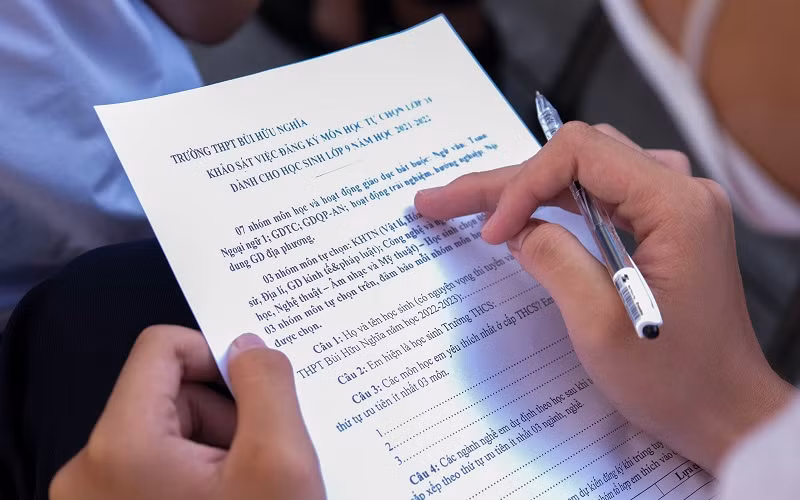 TRƯỜNG THPT BÙI HỮU NGHĨA
KHẢO SÁT VIỆC ĐĂNG KÝ MÔN HỌC TỰ CHỌN LỚP 10
DÀNH CHO HỌC SINH LỚP 9 NĂM HỌC 2021-2022
07 nhóm môn học và hoạt động giáo dục bắt buộc: Ngữ văn, Toán
Ngoại ngữ 1; GDTC; GDQP-AN; hoạt động trải nghiệm, hướng nghiệp; Nội
dung GD địa phương.
03 nhóm môn tự chọn: KHTN (Vật lí, Hóa
sử, Địa lí, GD kinh tế&pháp luật); Công nghệ và
học, Nghệ thuật – Âm nhạc và Mỹ thuật) – Học sinh chọn
03 nhóm môn tự chọn trên, đảm bảo mỗi nhóm môn
được chọn.
Câu 1: Họ và tên học sinh (có nguyện vọng thi tuyển và
THPT Bùi Hữu Nghĩa năm học 2022-2023):
Câu 2: Em hiện là học sinh Trường THCS:
Câu 3: Các môn học em yêu thích nhất ở cấp THCS? Em
thứ tự ưu tiên ít nhất 03 môn.
1.
2.
3.
Câu 4: Các ngành nghề em dự định theo học sau khi
sắp xếp theo thứ tự ưu tiên ít nhất 03 ngành, nghề.
em dự kiến đăng ký khi trúng tuy
hợp em thích vào
Lựa